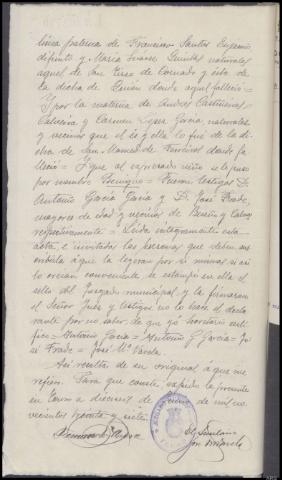 línea paterna de Francisco Santos Eugenio,
difunto y María Suarez Quintas naturales
aquel de San Tirso de Cornado y esta de
la dicha de donde aquel falleció=
Y por la materna de Andres Castiñeiras
Calveira y Carmen García, naturales
y vecinos que el es y ella lo fué de la di-
cha de San Mamed de donde fa-
lleció= Y que al expresado niño se le puso
por nombre Benigno= Fueron testigos D.
Antonio García García y D. José Frade,
mayores de edad y vecinos de y
respectivamente= Leida integramente esta
acta é invitadas las personas que deben sus-
cribirla á que la leyeran por si mismas si así
lo creían conveniente se estampó en ella el
sello del Juzgado municipal y la firmaron
el Señor Juez y testigos no lo hace el decla-
rante por no saber de que yo Secretario certi-
fico= Antonio García= Antonio G. García= Jo-
sé Frade= José Mª Varela.
Así resulta de su original á que me
refiero. Para que conste, expido la presente
en á de de mil no-
vecientos y siete.
El Secretario